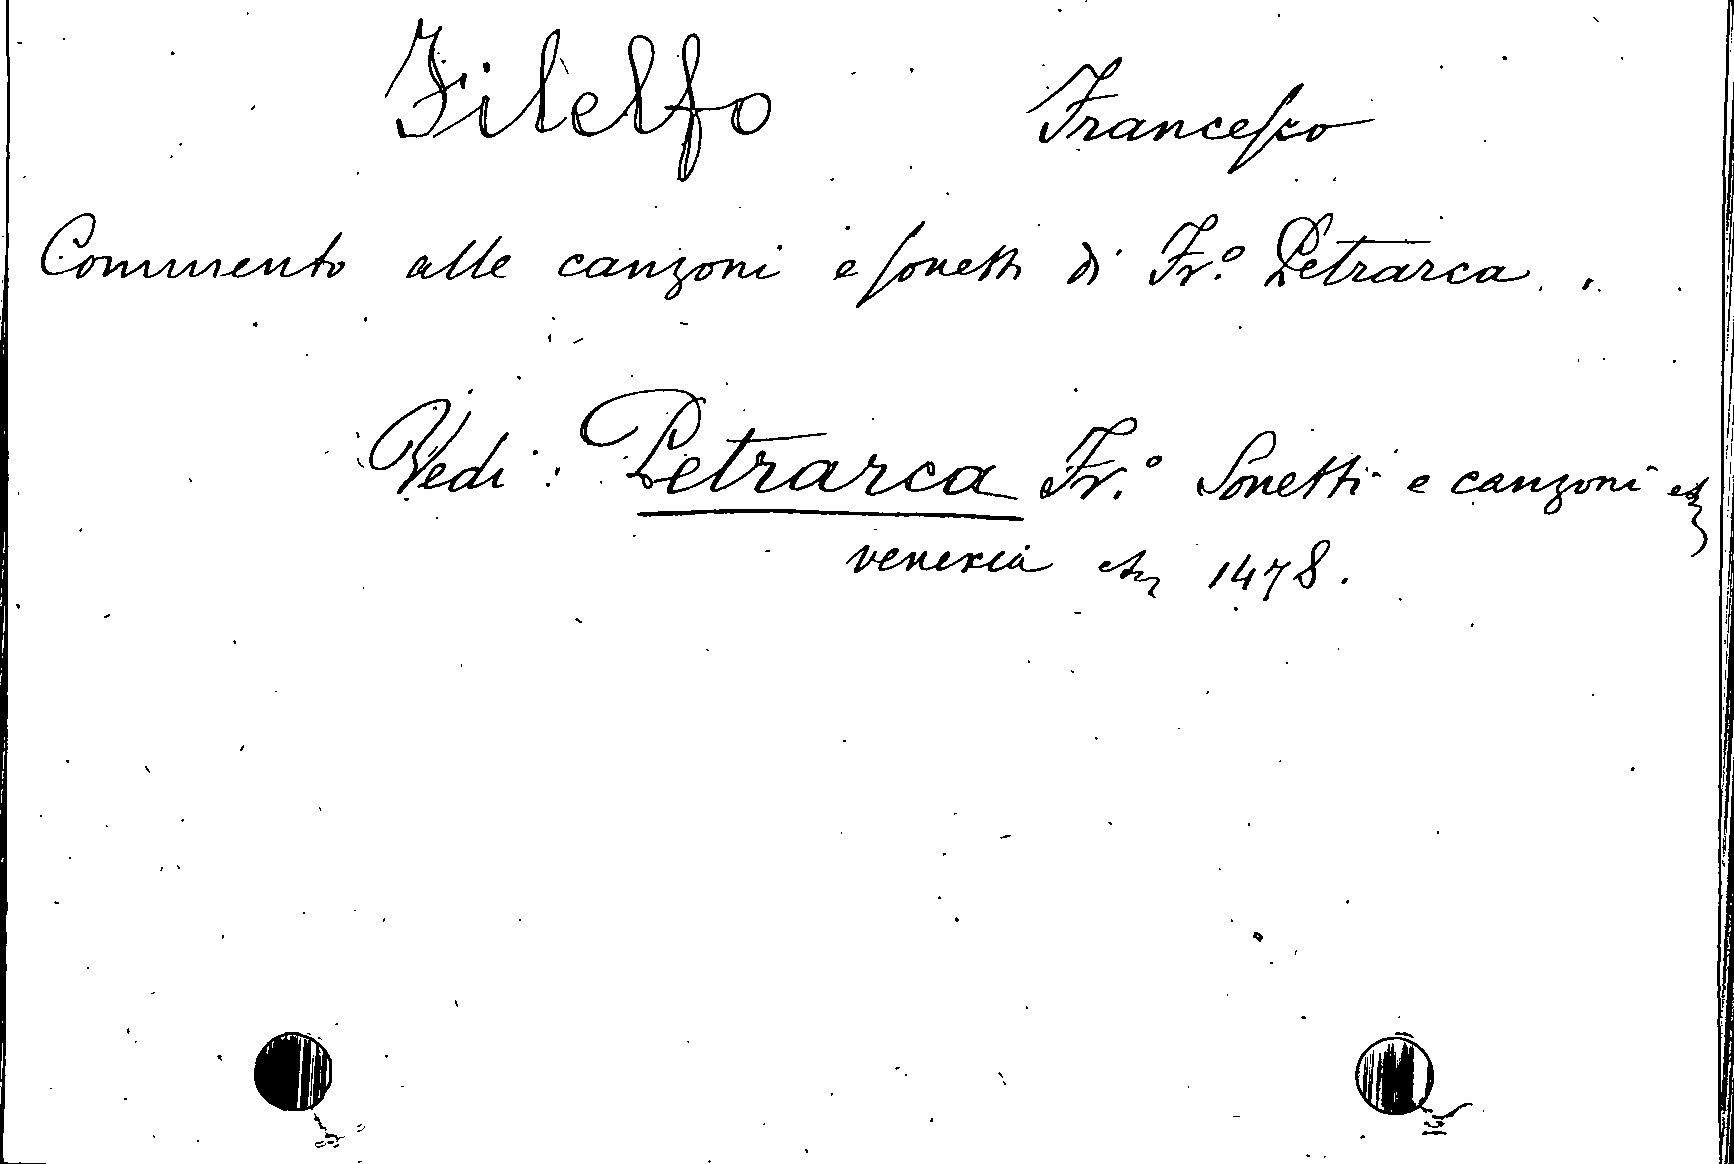 Filelfo Francesco
Commento alle canzoni e sonetti di Fr.º Petrarca.
Vedi: Petrarca Fr.º Sonetti e canzoni etc
venexia etc 1478.